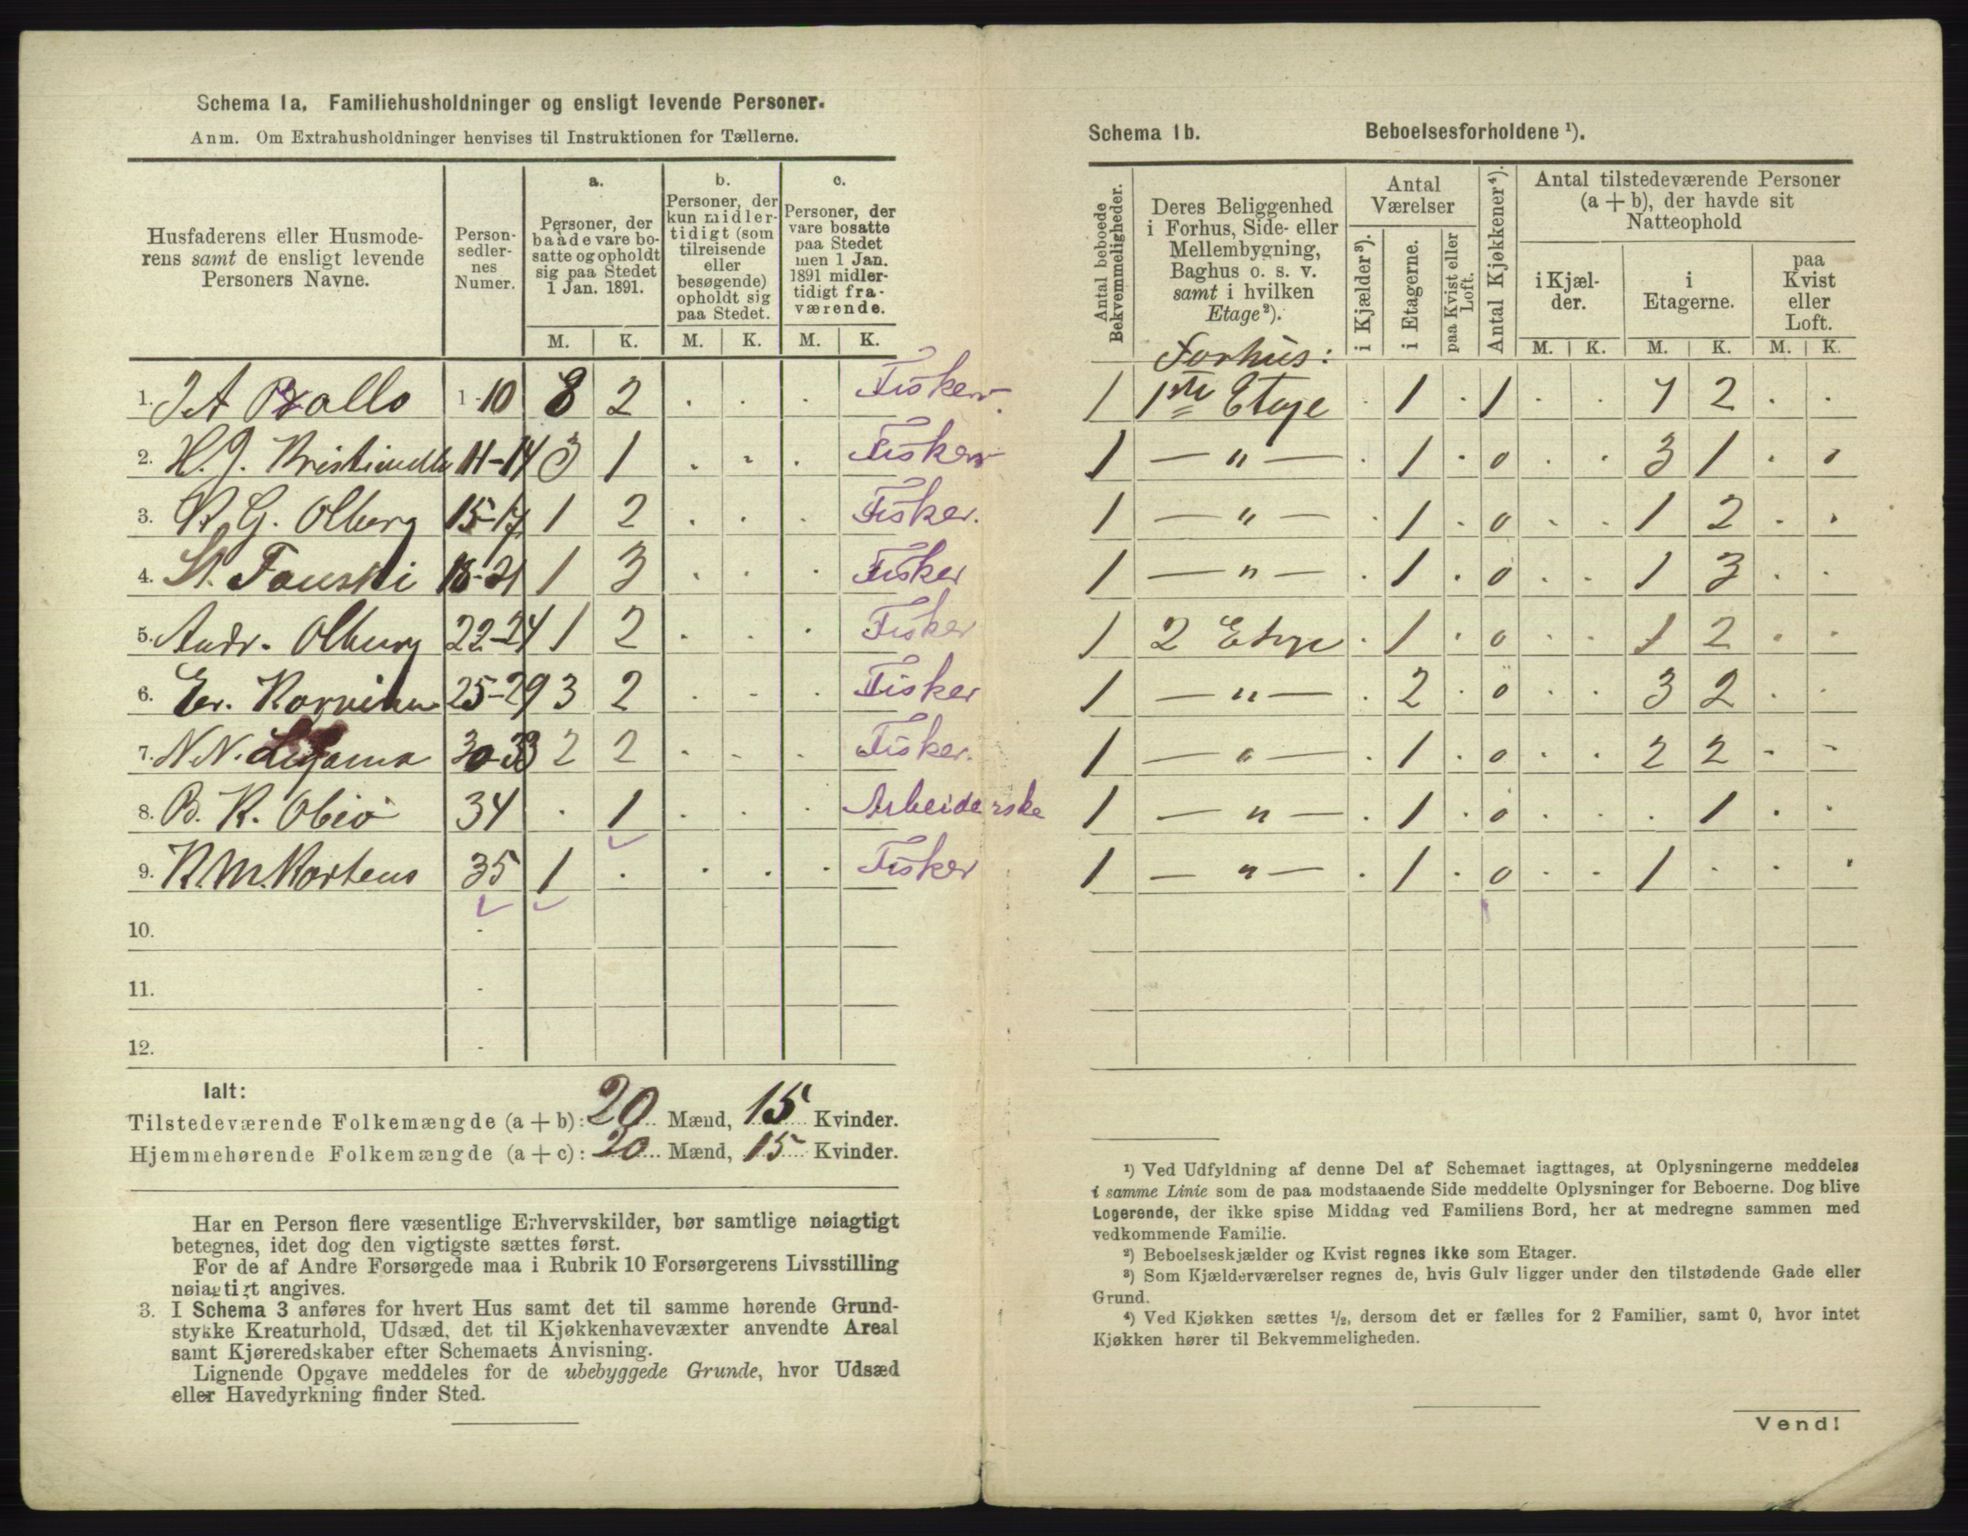 Schema 1a. Familiehusholdninger og ensligt levende Personer.
Anm. Om Extrahusholdninger henvises til Instruktionen for Tællerne.
Husfaderens eller Husmoderens samt de ensligt levende Personers Navne.
Person-sedlernes Numer.
a. Personer, der baade vare bosatte og opholdt sig paa Stedet 1 Jan. 1891.
b. Personer, der kun midlertidigt (som tilreisende eller besøgende) opholdt sig paa Stedet.
c. Personer, der vare bosatte paa Stedet men 1 Jan. 1891 midlertidigt fraværende.
M. K. M. K. M. K.
1. J A 1-10 8 2 . . . Fisker
2. H. J. 11-14 3 1 . . . Fisker
3. G. Olberg 15-17 1 2 . . . Fisker.
4. St. Fauski 18-21 1 3 . . . Fisker
5. Andr. Olberg 22-24 1 2 . . . Fisker
6. Er. 25-29 3 2 . . . Fisker
7. N N. 30-33 2 2 . . . Fisker.
8. B. K. 34 . 1 . . . Arbeiderske
9. N. M. Mortens 35 1 . . . . Fisker
10.
11.
12.
Ialt:
Tilstedeværende Folkemængde (a + b): 20 Mænd, 15 Kvinder.
Hjemmehørende Folkemængde (a + c): 20 Mænd, 15 Kvinder.
Har en Person flere væsentlige Erhvervskilder, bør samtlige nøiagtigt
betegnes, idet dog den vigtigste sættes først.
For de af Andre Forsørgede maa i Rubrik 10 Forsørgerens Livsstilling
nøiagtigt angives.
3. I Schema 3 anføres for hvert Hus samt det til samme hørende Grund-
stykke Kreaturhold, Udsæd, det til Kjøkkenhavevæxter anvendte Areal
samt Kjøreredskaber efter Schemaets Anvisning.
Lignende Opgave meddeles for de ubebyggede Grunde, hvor Udsæd
eller Havedyrkning finder Sted.
Schema 1b. Beboelsesforholdene ¹).
Antal beboede Bekvemmeligheder.
Deres Beliggenhed i Forhus, Side- eller Mellembygning, Baghus o. s. v. samt i hvilken Etage²).
Antal Værelser
i Kjælder³).
i Etagerne.
paa Kvist eller Loft.
Antal Kjøkkener⁴).
Antal tilstedeværende Personer (a + b), der havde sit Natteophold
i Kjælder.
i Etagerne.
paa Kvist eller Loft.
M. K. M. K. M. K.
Forhus:
1 1ste Etage . 1 . 1 . . 7 2 . .
1 — " — . 1 . 0 . . 3 1 . .
1 — " — . 1 . 0 . . 1 2 . .
1 — " — . 1 . 0 . . 1 3 . .
1 2 Etage . 1 . 0 . . 1 2 . .
1 — " — . 2 . 0 . . 3 2 . .
1 — " — . 1 . 0 . . 2 2 . .
1 — " — . 1 . 0 . . . 1 . .
1 — " — . 1 . 0 . . 1 . . .
¹) Ved Udfyldning af denne Del af Schemaet iagttages, at Oplysningerne meddeles
i samme Linie som de paa modstaaende Side meddelte Oplysninger for Beboerne. Dog blive
Logerende, der ikke spise Middag ved Familiens Bord, her at medregne sammen med
vedkommende Familie.
²) Beboelseskjælder og Kvist regnes ikke som Etager.
³) Som Kjælderværelser regnes de, hvis Gulv ligger under den tilstødende Gade eller
Grund.
⁴) Ved Kjøkken sættes ½, dersom det er fælles for 2 Familier, samt 0, hvor intet
Kjøkken hører til Bekvemmeligheden.
Vend!